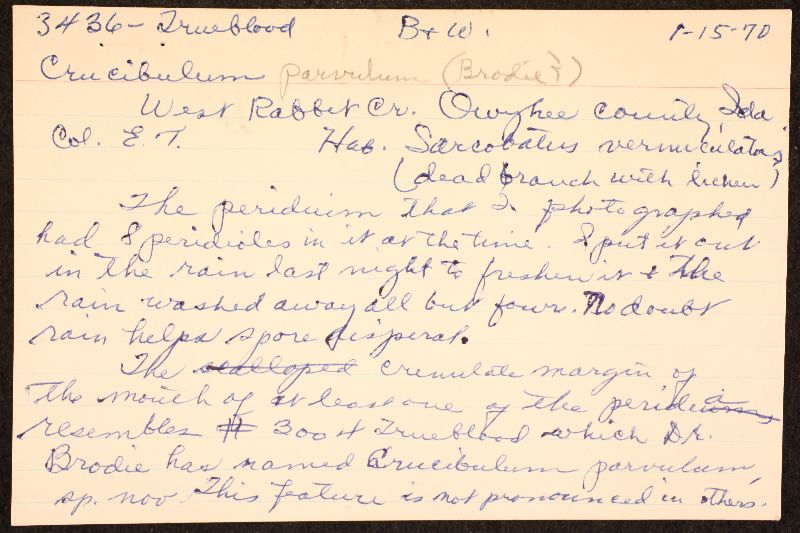 3436- Trueblood B+W. 1-15-70
Crucibulum parvulum (Brodie?)
West Rabbit Cr. Owyhee county, Ida.
Col. E. T. Hab. Sarcobatus vermiculatus
(dead branch with lichen)
The peridium that I photographed
had 8 peridioles in it at the time. I put it out
in the rain last night to freshen it + the
rain washed away all but four. No doubt
rain helps spore dispersal.
The scalloped crenulate margin of
the mouth of at least one of the peridia
resembles # 3004 Trueblood which Dr.
Brodie has named Crucibulum parvulum,
sp. nov. This feature is not pronounced in others.